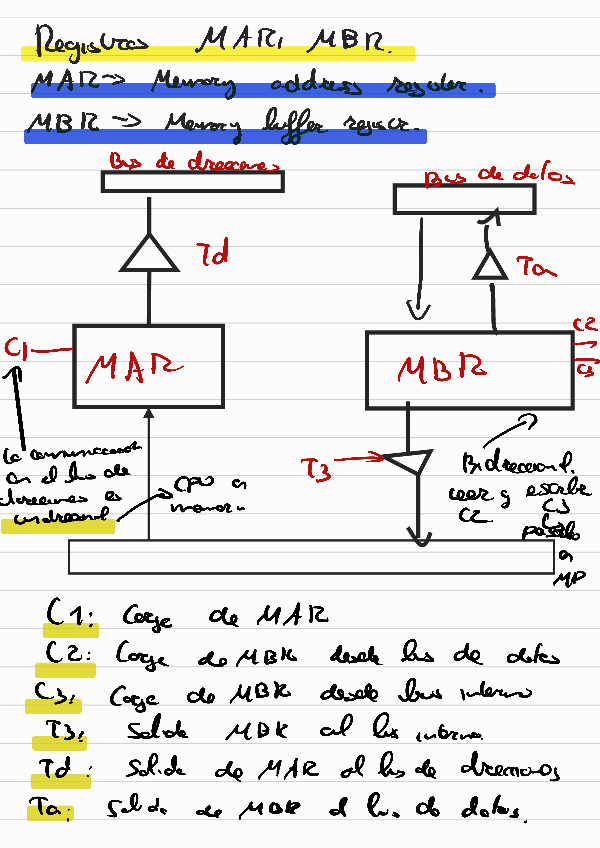 Registros MAR, MBR.
MAR → Memory address register.
MBR → Memory buffer register.
Bus de direcciones
Bus de datos
Td
Ta
C1
MAR
MBR
C2
C3
La comunicacion
en el bus de
direcciones es
unidireccional
CPU a
memoria
T3
Bidireccional.
leer y escribir
C2 C3
pasarlo
a
MP
C1: Carga de MAR
C2: Carga de MBR desde bus de datos
C3: Carga de MBR desde bus interno
T3: Salida MBR al bus interno.
Td: Salida de MAR al bus de direcciones
Ta: Salida de MBR al bus de datos.